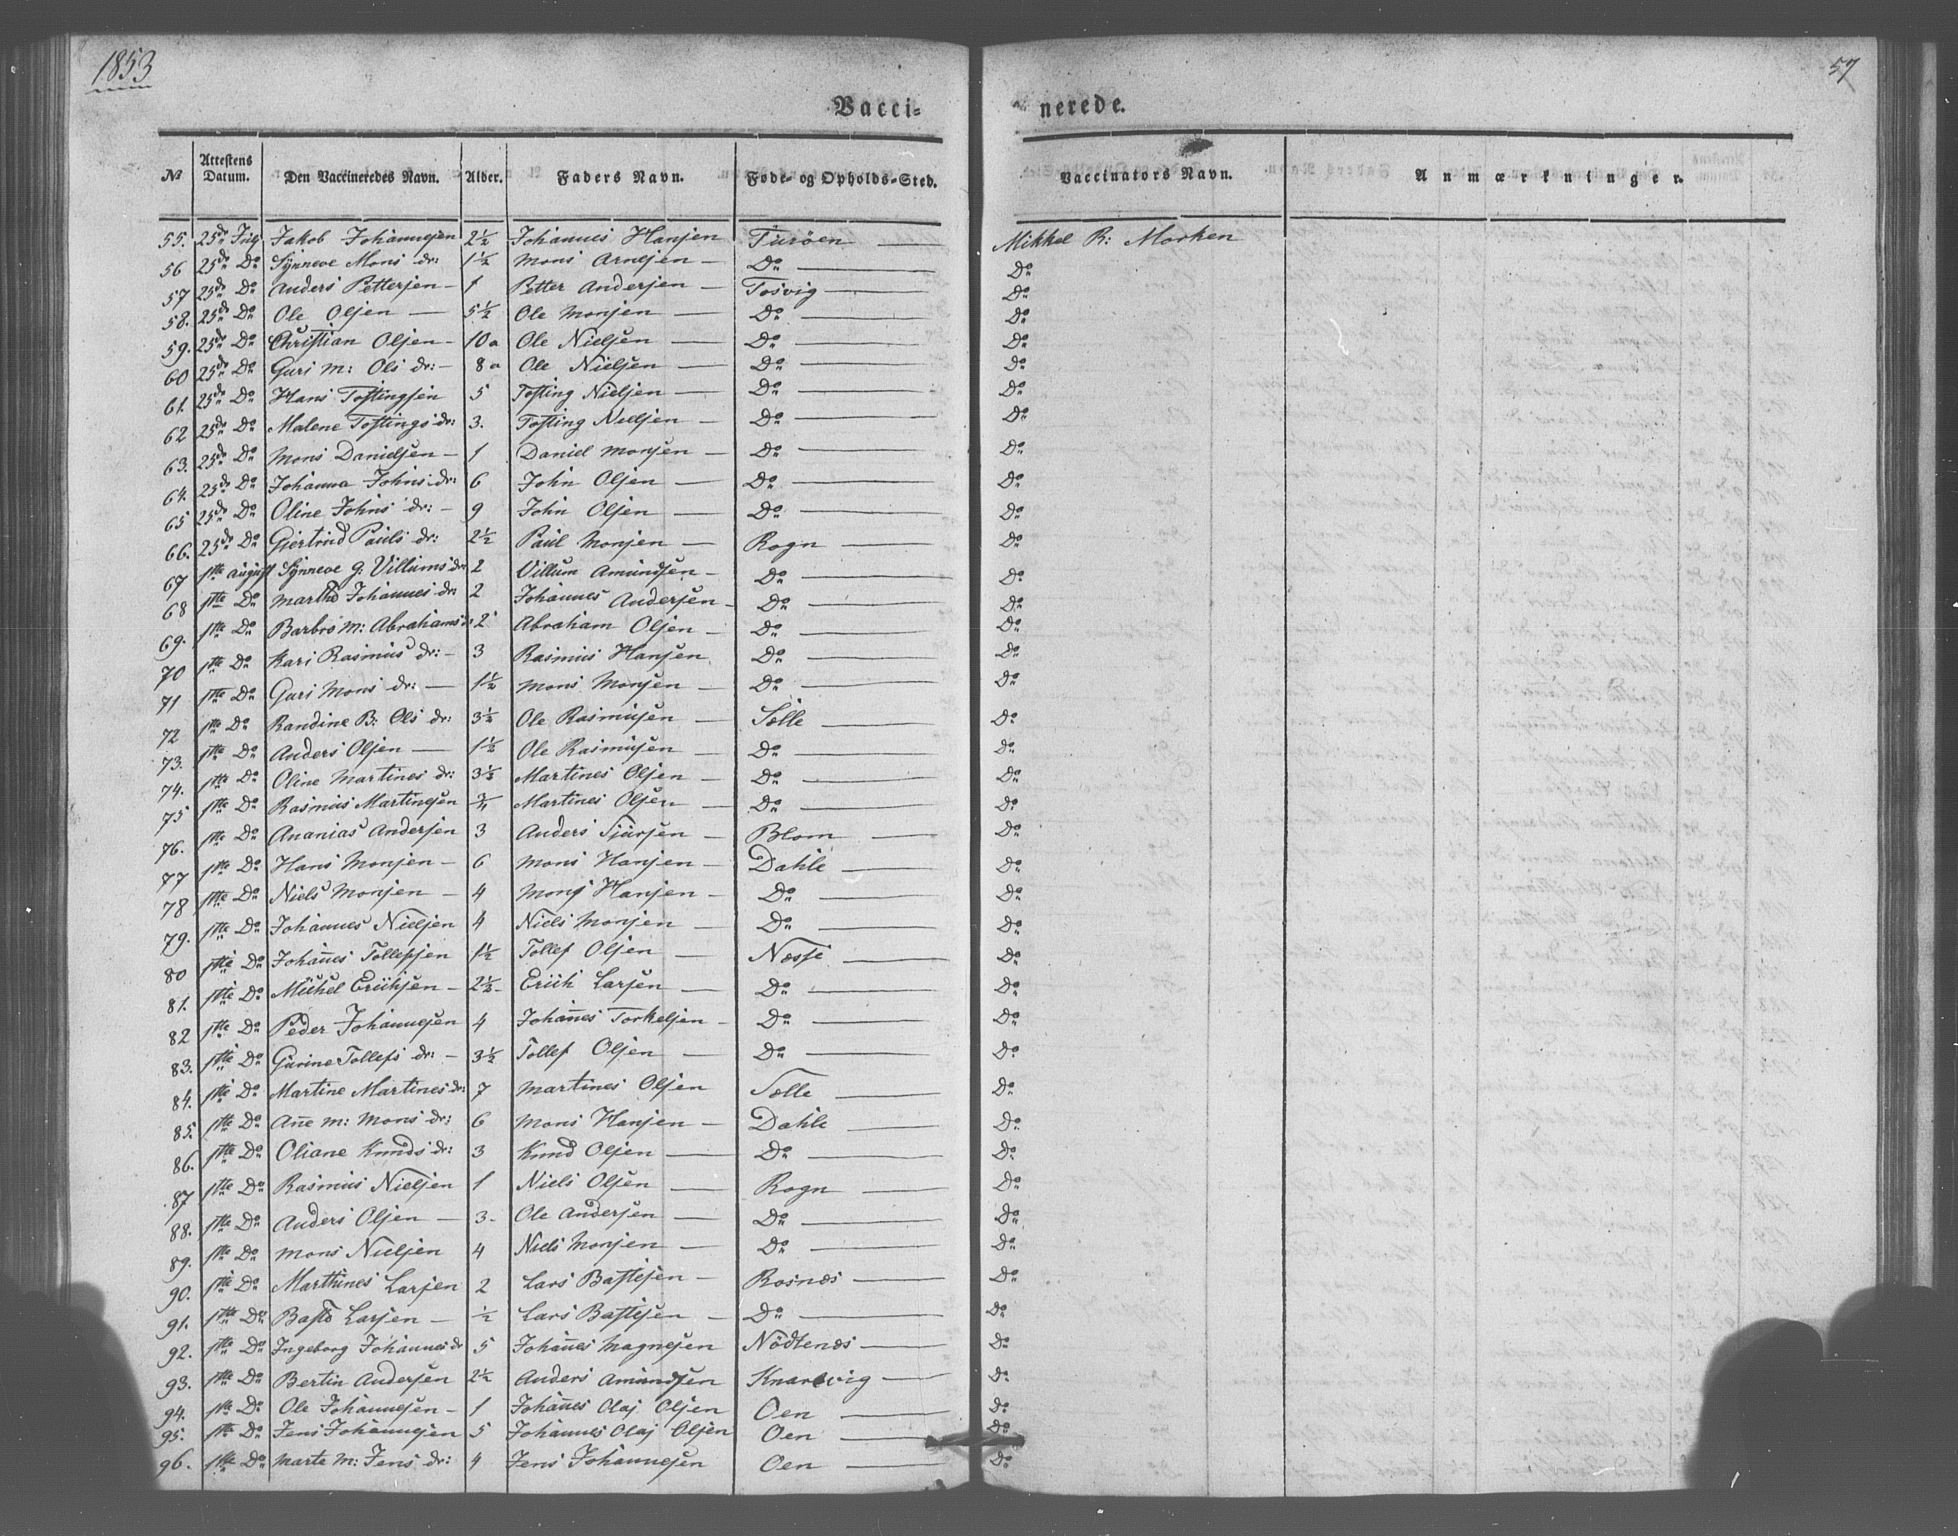 1853
57
Vacci-
nerede.
No Attestens Datum. Den Vaccineredes Navn. Alder. Faders Navn. Føde- og Opholds-Sted. Vaccinators Navn. Anmærkninger.
55. 25de July Jakob Johannesen 2½ Johannes Hansen Turöen Mikkel R: Morken
56 25de Do Synneve Mons dr: 1½ Mons Arnesen Do Do
57 25de Do Anders Pettersen 1 Petter Andersen Tosvig Do
58. 25de Do Ole Olsen 5½ Ole Monsen Do Do
59. 25de Do Christian Olsen 10a Ole Nielsen Do Do
60 25de Do Guri M: Ols dr: 8a Ole Nielsen Do Do
61. 25de Do Hans Tostingsen 5 Tosting Nielsen Do Do
62 25de Do Malene Tostings dr: 3. Tosting Nielsen Do Do
63. 25de Do Mons Danielsen 1 Daniel Monsen Do Do
64. 25de Do Johanna Johns dr: 6 John Olsen Do Do
65 25de Do Oline Johns dr: 9 John Olsen Do Do
66. 25de Do Giertrud Pauls dr: 2½ Paul Monsen Rogn Do
67 1ste August Synneve g: Villums dr 2 Villum Amundsen Do Do
68 1ste Do Marthe Johannes dr: 2 Johannes Andersen Do Do
69. 1ste Do Barbro M: Abrahams dr 2 Abraham Olsen Do Do
70 1ste Do Kari Rasmus dr: 3 Rasmus Hansen Do Do
71 1ste Do Guri Mons dr: 1½ Mons Monsen Do Do
72 1ste Do Randine B: Ols dr: 3½ Ole Rasmusen Sælle Do
73. 1ste Do Anders Olsen 1½ Ole Rasmusen Do Do
74. 1ste Do Oline Martines dr: 3½ Martines Olsen Do Do
75 1ste Do Rasmus Martinesen ¾ Martines Olsen Do Do
76. 1ste Do Ananias Andersen 3 Anders Siursen Blom Do
77 1ste Do Hans Monsen 6 Mons Hansen Dahle Do
78 1ste Do Niels Monsen 4 Mons Hansen Do Do
79. 1ste Do Johannes Nielsen 4 Niels Monsen Do Do
80 1ste Do Johañes Tollefsen 1½ Tollef Olsen Næsse Do
81. 1ste Do Mickel Ericksen 2½ Erich Larsen Do Do
82 1ste Do Peder Johannesen 4 Johañes Torkelsen Do Do
83. 1ste Do Gurine Tollefs dr: 3½ Tollef Olsen Do Do
84. 1ste Do Martine Martines dr: 7 Martines Olsen Sælle Do
85. 1ste Do Añe M: Mons dr: 6 Mons Hansen Dahle Do
86. 1ste Do Oliane Knuds dr: 3 Knud Olsen Do Do
87 1ste Do Rasmus Nielsen 1 Niels Olsen Rogn Do
88. 1ste Do Anders Olsen 3. Ole Andersen Do Do
89. 1ste Do Mons Nielsen 4 Niels Monsen Do Do
90. 1ste Do Marthines Larsen 2 Lars Bastesen Rosnæs Do
91. 1ste Do Baste Larsen ½ Lars Bastesen Do Do
92. 1ste Do Ingeborg Johannes dr 5 Johañes Magnesen Nödtenæs Do
93. 1ste Do Bertin Andersen 2½ Anders Amundsen Knarevig Do
94. 1ste Do Ole Johannesen 1 Johañes Olaj Olsen Oen Do
95. 1ste Do Jens Johannesen 5 Johannes Olaj Olsen Oen Do
96. 1ste Do Marte M: Jens dr: 4 Jens Johannesen Oen Do